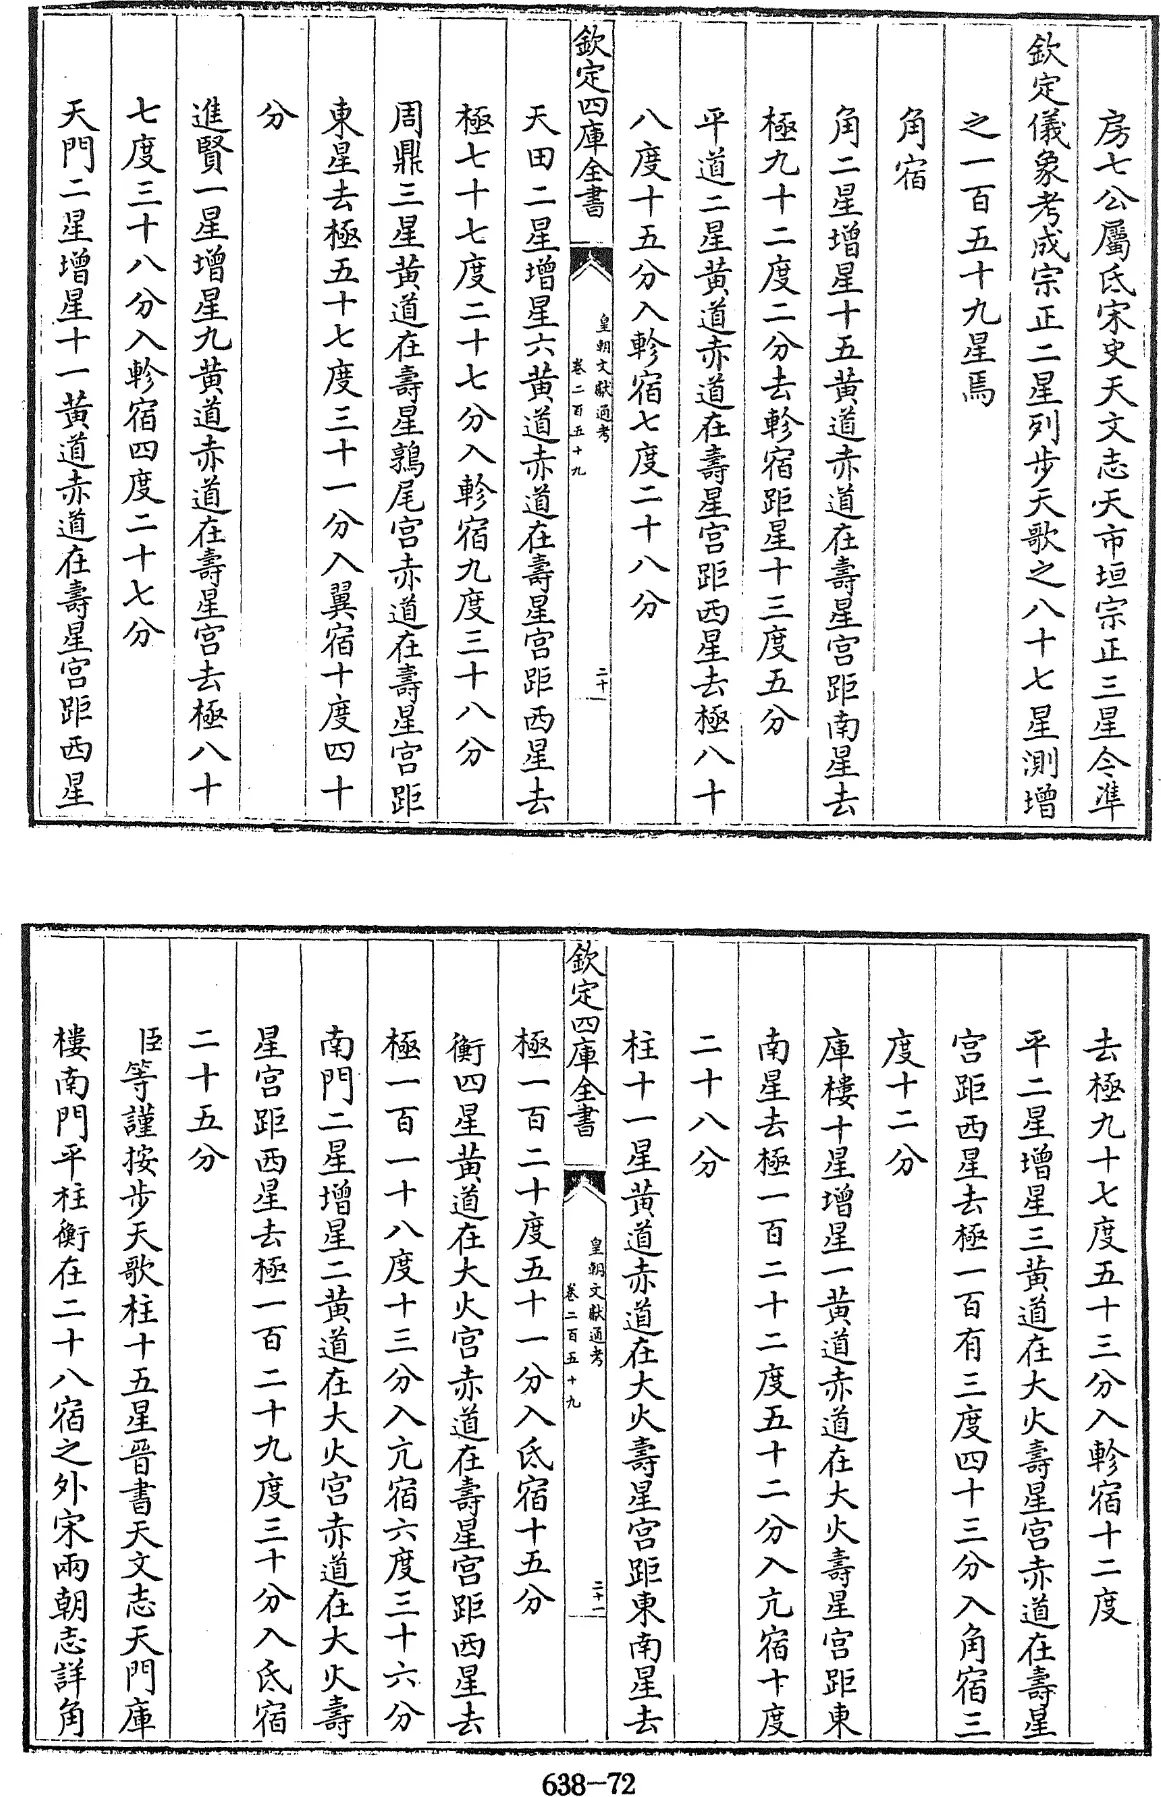 房七公屬氐宋史天文志天市垣宗正三星今準
欽定儀象考成宗正二星列步天歌之八十七星測增
之一百五十九星焉
角宿
角二星增星十五黄道赤道在壽星宫距南星去
極九十二度二分去軫宿距星十三度五分
平道二星黄道赤道在壽星宫距西星去極八十
八度十五分入軫宿七度二十八分
欽定四庫全書
皇朝文獻通考
卷二百五十九
二十
天田二星增星六黄道赤道在壽星宫距西星去
極七十七度二十七分入軫宿九度三十八分
周鼎三星黄道在壽星鶉尾宫赤道在壽星宫距
東星去極五十七度三十一分入翼宿十度四十
分
進賢一星增星九黄道赤道在壽星宫去極八十
七度三十八分入軫宿四度二十七分
天門二星增星十一黄道赤道在壽星宫距西星
去極九十七度五十三分入軫宿十二度
平二星增星三黄道在大火壽星宫赤道在壽星
宫距西星去極一百有三度四十三分入角宿三
度十二分
庫樓十星增星一黄道赤道在大火壽星宫距東
南星去極一百二十二度五十二分入亢宿十度
二十八分
柱十一星黄道赤道在大火壽星宫距東南星去
欽定四庫全書
皇朝文獻通考
卷二百五十九
二十一
極一百二十度五十一分入氐宿十五分
衡四星黄道在大火宫赤道在壽星宫距西星去
極一百一十八度十三分入亢宿六度三十六分
南門二星增星二黄道在大火宫赤道在大火壽
星宫距西星去極一百二十九度三十分入氐宿
二十五分
臣等謹按步天歌柱十五星晉書天文志天門庫
樓南門平柱衡在二十八宿之外宋兩朝志詳角
638-72